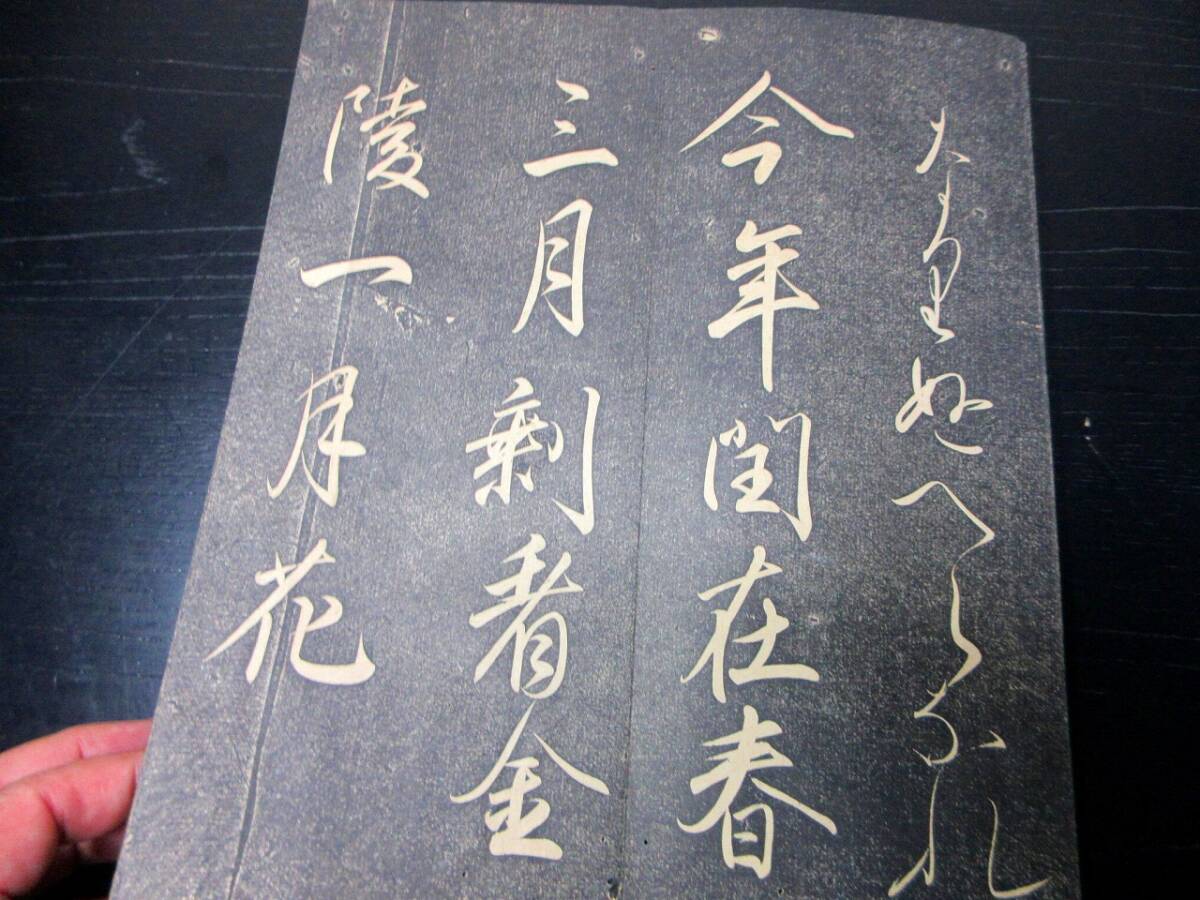 なりぬへらなれ
今年閏在春
三月剩看金
陵一月花